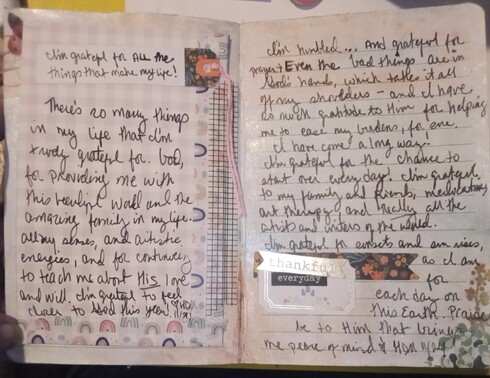 I'm grateful for ALL the
things that make my life!
There's so many things
in my life that I'm
truly grateful for. God,
for providing me with
this beautiful world and the
amazing family in my life.
all my senses, and artistic
energies, and for continuing
to teach me about His love
and will. I'm grateful to feel
closer to God this year!
I'm humbled... And grateful for
prayer! Even the bad things are in
God's hands, which takes it all
off my shoulders - and I have
so much gratitude to Him for helping
me to ease my burdens, for one.
I have come a long way.
I'm grateful for the chance to
start over every day! I'm grateful
to my family and friends, medications,
art therapy, and Really all the
artists and writers of the world.
I'm grateful for sunsets and sun rises,
thankful
everyday
as I am
for
each day on
this Earth. Praise
be to Him that brings
me peace of mind! HDM 11/24